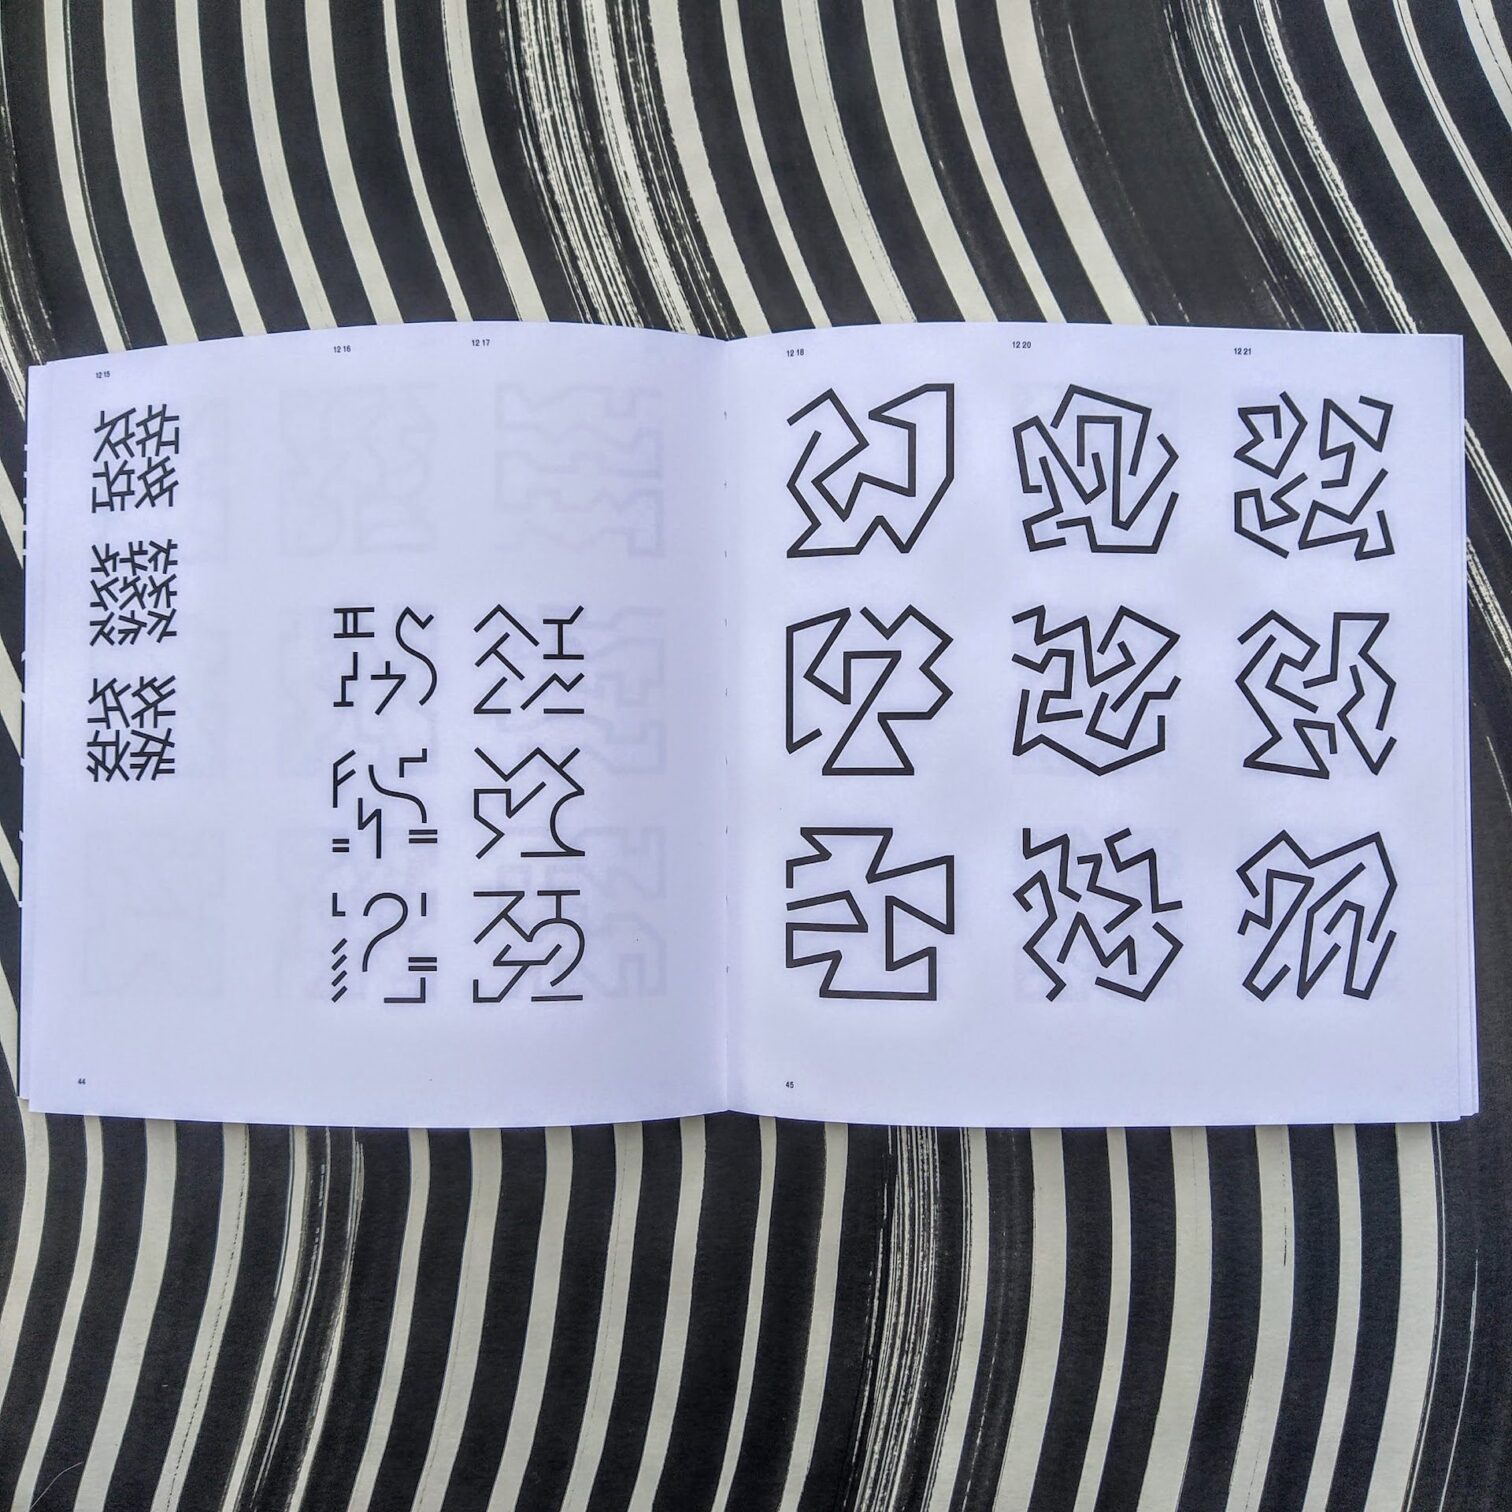 12 15
12 16
12 17
44
12 18
12 20
12 21
45